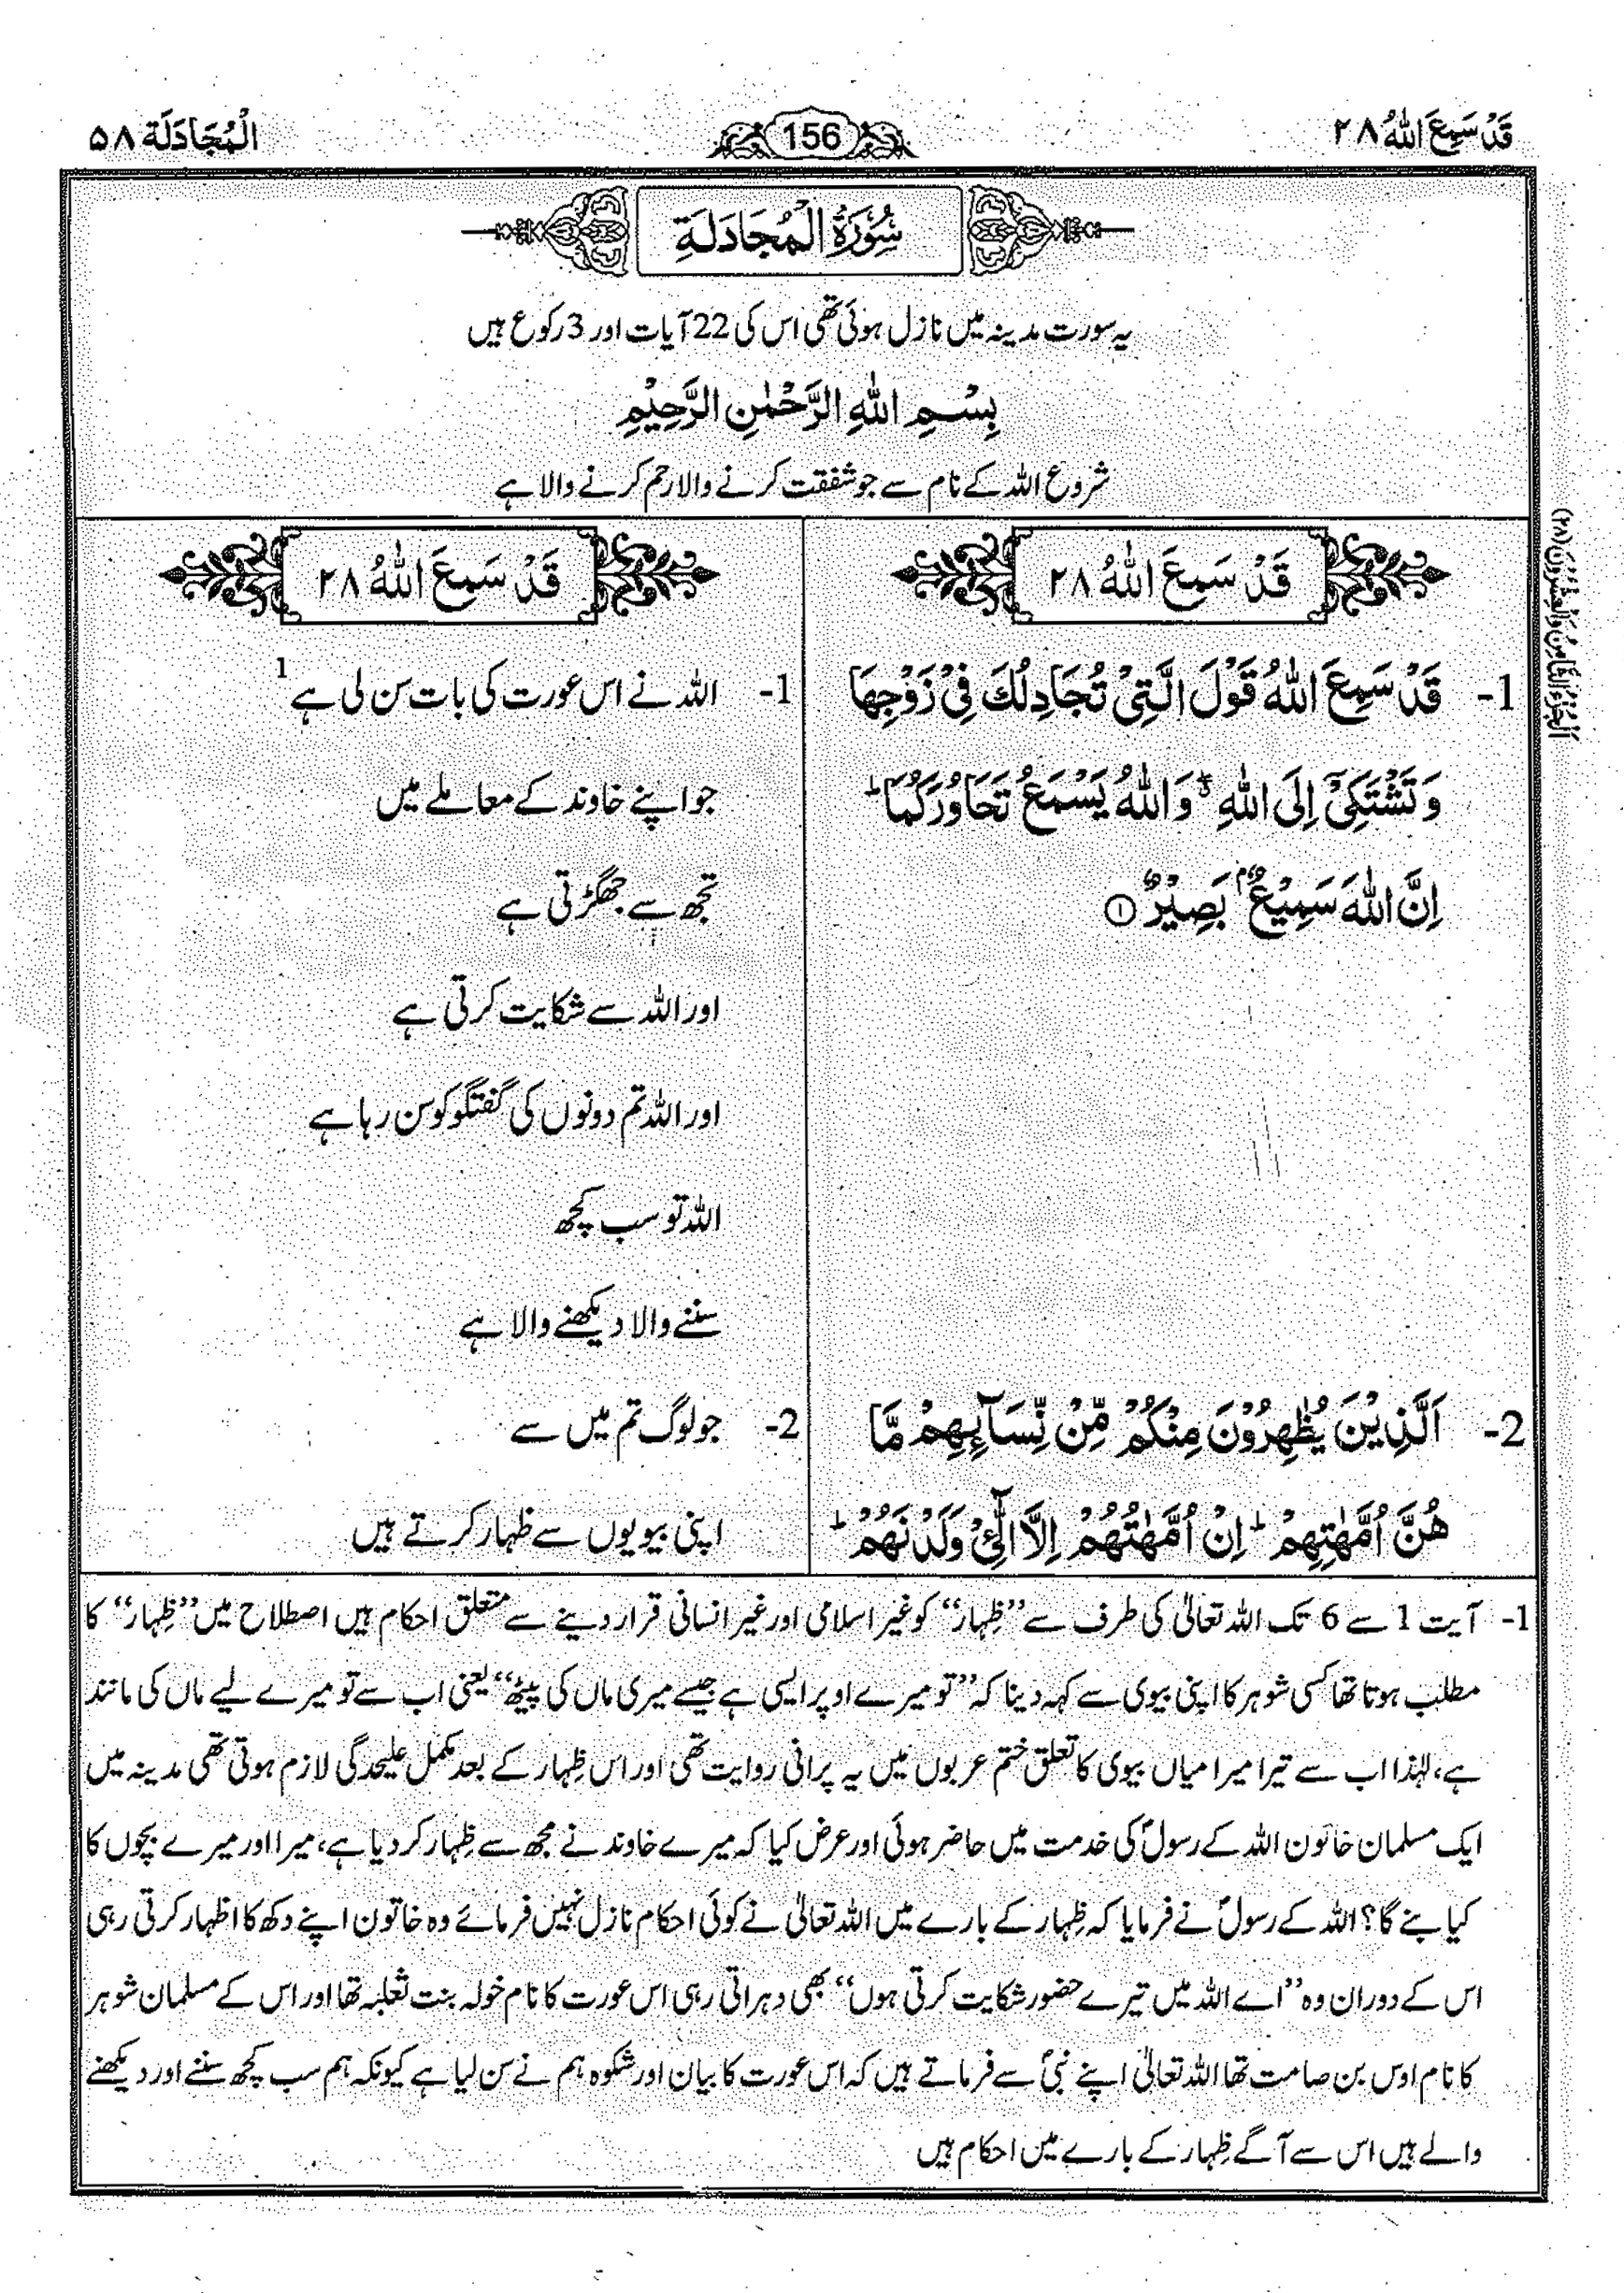 قَدْ سَمِعَ اللّٰهُ ۲۸
156
الْمُجَادَلَة ۵۸
سُوْرَةُ الْمُجَادَلَةِ
یہ سورت مدینہ میں نازل ہوئی تھی اس کی 22 آیات اور 3 رکوع ہیں
بِسْمِ اللّٰهِ الرَّحْمٰنِ الرَّحِيْمِ
شروع اللہ کے نام سے جو شفقت کرنے والا رحم کرنے والا ہے
قَدْ سَمِعَ اللّٰهُ ۲۸
1- قَدْ سَمِعَ اللّٰهُ قَوْلَ الَّتِيْ تُجَادِلُكَ فِيْ زَوْجِهَا
وَتَشْتَكِيْٓ اِلَى اللّٰهِ ۖ وَاللّٰهُ يَسْمَعُ تَحَاوُرَكُمَا ؕ
اِنَّ اللّٰهَ سَمِيْعٌۢ بَصِيْرٌ ①
2- اَلَّذِيْنَ يُظٰهِرُوْنَ مِنْكُمْ مِّنْ نِّسَآئِهِمْ مَّا
هُنَّ اُمَّهٰتِهِمْ ؕ اِنْ اُمَّهٰتُهُمْ اِلَّا الّٰٓـِٔيْ وَلَدْنَهُمْ ؕ
قَدْ سَمِعَ اللّٰهُ ۲۸
1- اللہ نے اس عورت کی بات سن لی ہے 1
جو اپنے خاوند کے معاملے میں
تجھ سے جھگڑتی ہے
اور اللہ سے شکایت کرتی ہے
اور اللہ تم دونوں کی گفتگو کو سن رہا ہے
اللہ تو سب کچھ
سننے والا دیکھنے والا ہے
2- جو لوگ تم میں سے
اپنی بیویوں سے ظہار کرتے ہیں
1- آیت 1 سے 6 تک اللہ تعالیٰ کی طرف سے ”ظِہار“ کو غیر اسلامی اور غیر انسانی قرار دینے سے متعلق احکام ہیں اصطلاح میں ”ظِہار“ کا
مطلب ہوتا تھا کسی شوہر کا اپنی بیوی سے کہہ دینا کہ ”تو میرے اوپر ایسی ہے جیسے میری ماں کی پیٹھ“ یعنی اب سے تو میرے لیے ماں کی مانند
ہے، لہٰذا اب سے تیرا میرا میاں بیوی کا تعلق ختم عربوں میں یہ پرانی روایت تھی اور اس ظِہار کے بعد مکمل علیحدگی لازم ہوتی تھی مدینہ میں
ایک مسلمان خاتون اللہ کے رسولؐ کی خدمت میں حاضر ہوئی اور عرض کیا کہ میرے خاوند نے مجھ سے ظِہار کر دیا ہے، میرا اور میرے بچوں کا
کیا بنے گا؟ اللہ کے رسولؐ نے فرمایا کہ ظِہار کے بارے میں اللہ تعالیٰ نے کوئی احکام نازل نہیں فرمائے وہ خاتون اپنے دکھ کا اظہار کرتی رہی
اس کے دوران وہ ”اے اللہ میں تیرے حضور شکایت کرتی ہوں“ بھی دہراتی رہی اس عورت کا نام خولہ بنت ثعلبہ تھا اور اس کے مسلمان شوہر
کا نام اوس بن صامت تھا اللہ تعالیٰ اپنے نبیؐ سے فرماتے ہیں کہ اس عورت کا بیان اور شکوہ ہم نے سن لیا ہے کیونکہ ہم سب کچھ سننے اور دیکھنے
والے ہیں اس سے آگے ظِہار کے بارے میں احکام ہیں
اَلْجُزْءُ الثَّامِنُ وَالْعِشْرُوْنَ (۲۸)